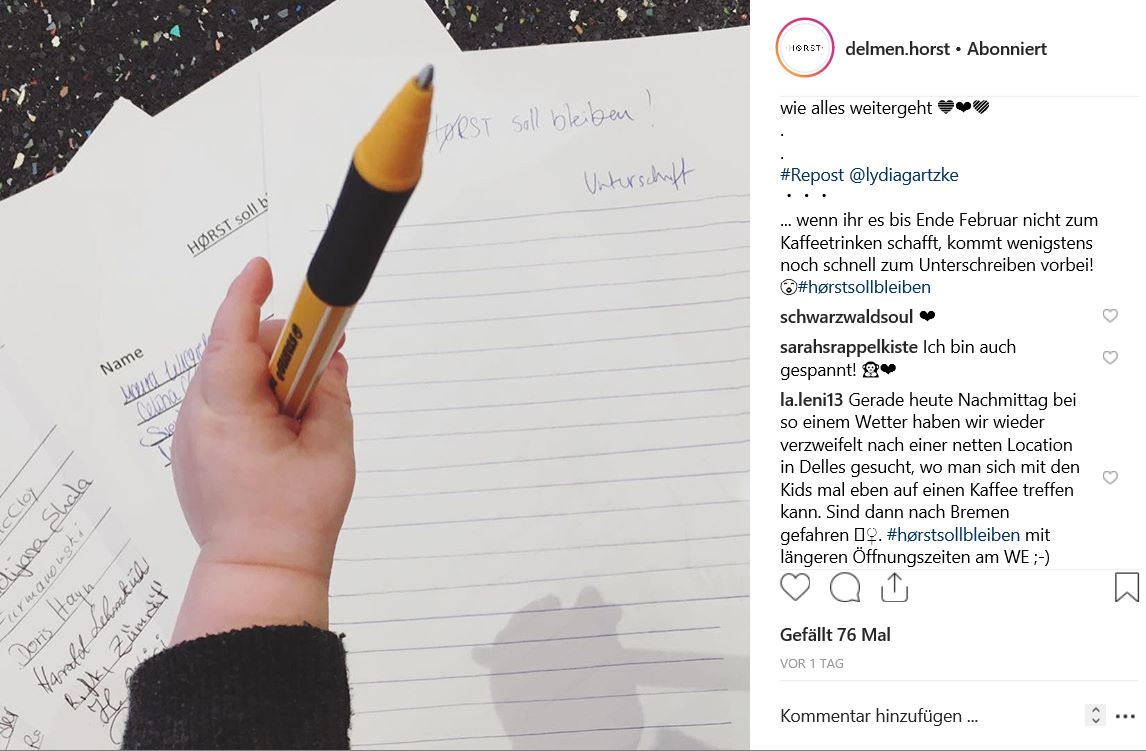 HØRST soll bleiben!
Unterschrift
HØRST soll b
Name
Doris Hayn
Harald
-HØRST-
delmen.horst • Abonniert
wie alles weitergeht
.
.
#Repost @lydiagartzke
• • •
... wenn ihr es bis Ende Februar nicht zum
Kaffeetrinken schafft, kommt wenigstens
noch schnell zum Unterschreiben vorbei!
😮#hørstsollbleiben
schwarzwaldsoul ❤
sarahsrappelkiste Ich bin auch
gespannt! 🙊❤
la.leni13 Gerade heute Nachmittag bei
so einem Wetter haben wir wieder
verzweifelt nach einer netten Location
in Delles gesucht, wo man sich mit den
Kids mal eben auf einen Kaffee treffen
kann. Sind dann nach Bremen
gefahren ▯♀. #hørstsollbleiben mit
längeren Öffnungszeiten am WE ;-)
Gefällt 76 Mal
VOR 1 TAG
Kommentar hinzufügen ...